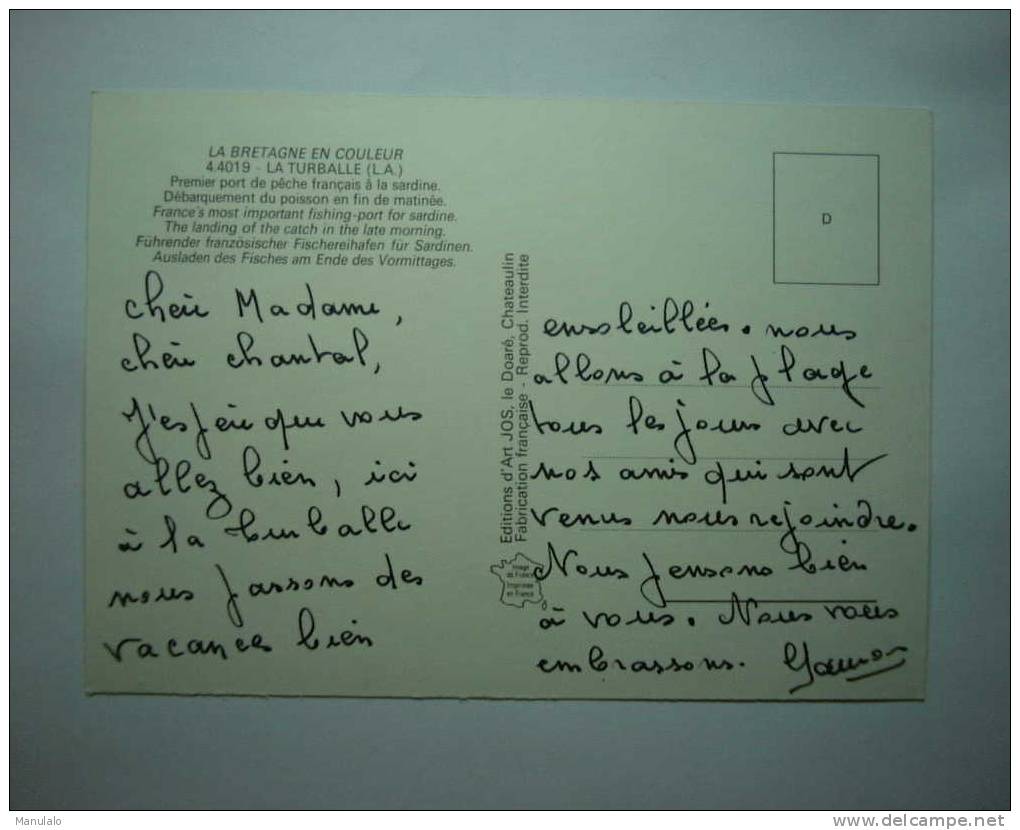 LA BRETAGNE EN COULEUR
4.4019 - LA TURBALLE (L.A.)
Premier port de pêche français à la sardine.
Débarquement du poisson en fin de matinée.
France's most important fishing-port for sardine.
The landing of the catch in the late morning.
Führender französischer Fischereihafen für Sardinen.
Ausladen des Fisches am Ende des Vormittages.
Chère Madame,
chère chantal,
J'espère que vous
allez bien, ici
à la turballe
nous passons des
vacances bien
Editions d'Art JOS, le Doaré, Chateaulin
Fabrication française - Reprod. Interdite
Image
de France
Imprimée
en France
D
ensoleillées. nous
allons à la plage
tous les jours avec
nos amis qui sont
venus nous rejoindre.
Nous pensons bien
à vous. Nous vous
embrassons.
Manulalo
delcampe.net